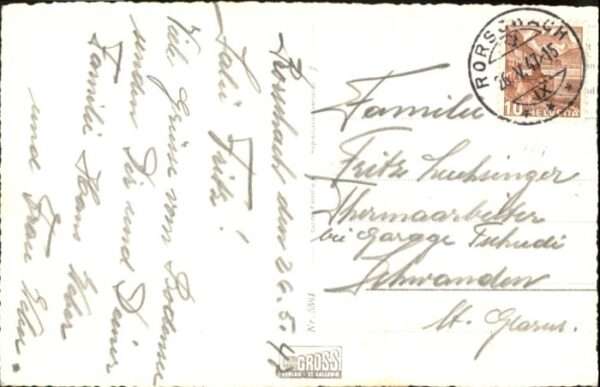 Rorschach den 26.5.47
Salü Fritz!
Viele Grüsse vom Bodensee
senden Dir und Deiner
Familie Hans Weber
und Frau
Familie
Fritz Luchsinger
Thermaarbeiter
bei Garage Tschudi
Schwanden
Kt. Glarus.
RORSCHACH
26.V.47-15
IX
10 HELVETIA
GROSS
ST. GALLEN